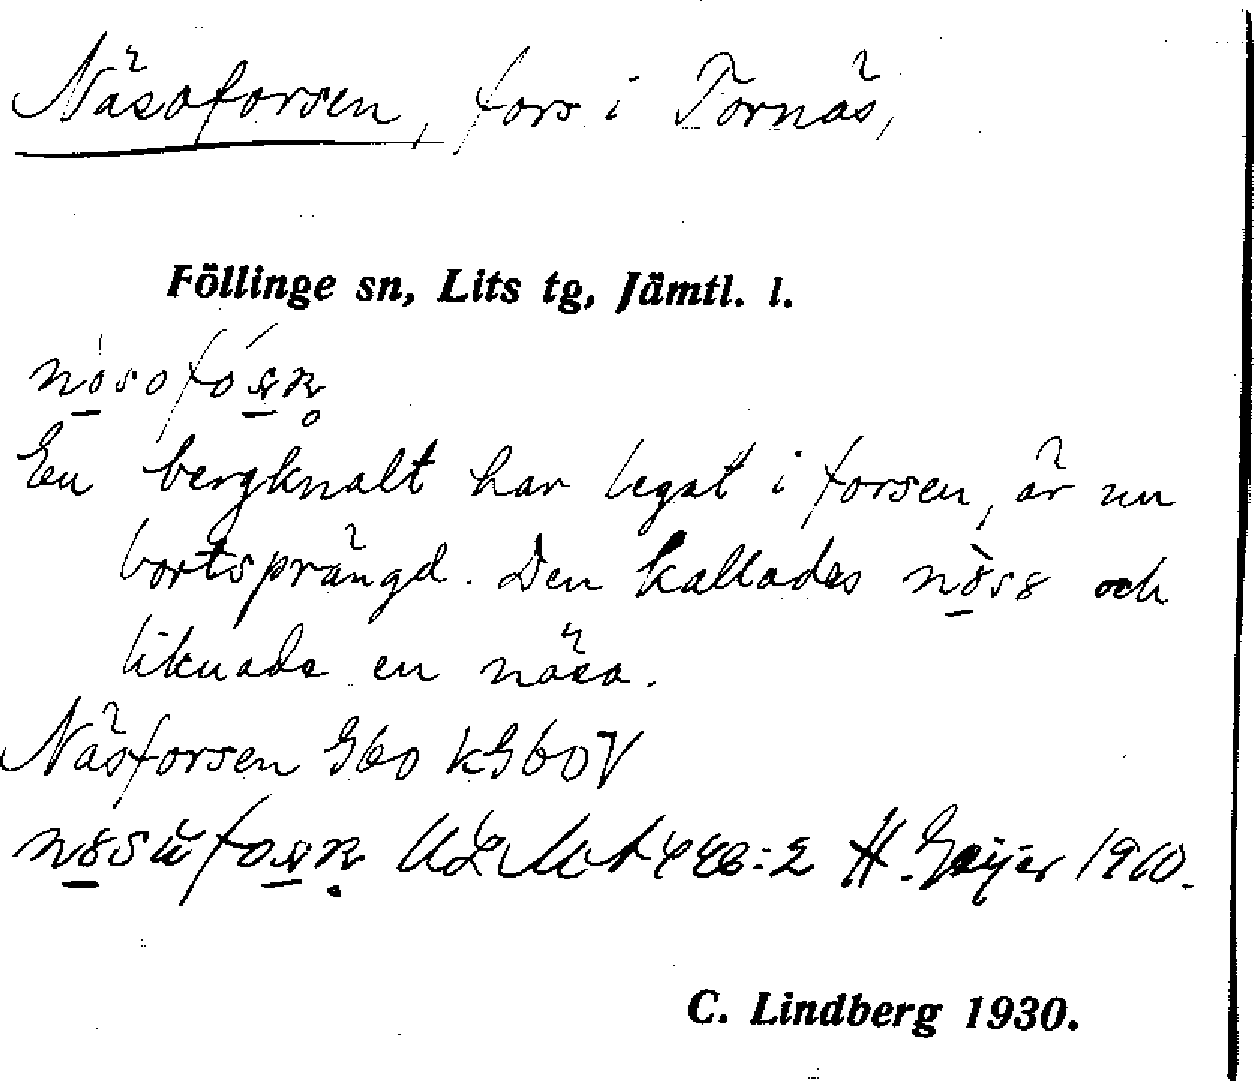 Näsoforsen, fors i Tornäs,
Föllinge sn, Lits tg, Jämtl. l.
En bergknalt har legat i forsen, är nu
bortsprängd. Den kallades och
liknade en näsa.
Näsforsen G60 kG60V
H. Geijer 1910.
C. Lindberg 1930.